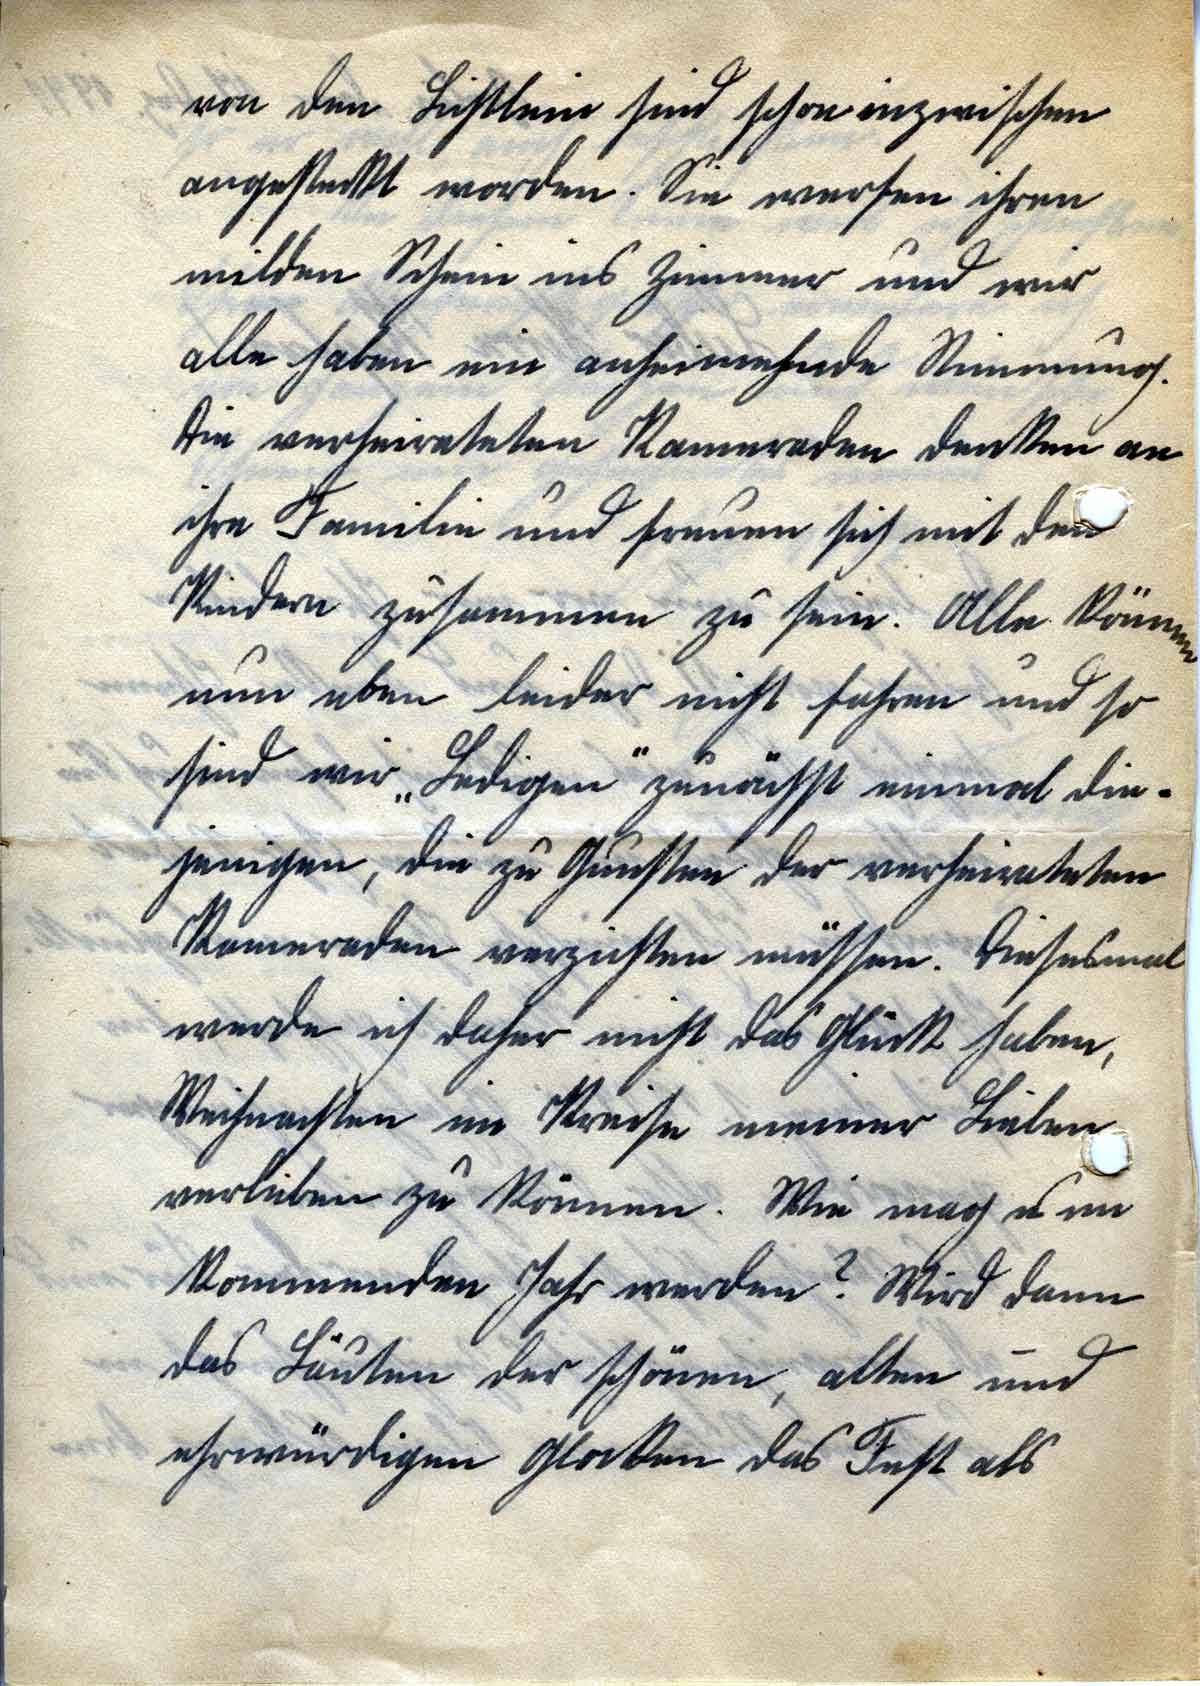 von den Lichtlein sind schon inzwischen
angesteckt worden. Sie werfen ihren
milden Schein ins Zimmer und wir
alle haben eine anheimelnde Stimmung.
Die verheirateten Kameraden denken an
ihre Familie und freuen sich mit den
Kindern zusammen zu sein. Alle können
nun eben leider nicht fahren und so
sind wir „Ledigen" zunächst einmal die-
jenigen, die zu Gunsten der verheirateten
Kameraden verzichten müssen. Diesesmal
werde ich daher nicht das Glück haben,
Weihnachten im Kreise meiner Lieben
verleben zu können. Wie mag es im
kommenden Jahr werden? Wird dann
das Läuten der schönen, alten und
ehrwürdigen Glocken das Fest als